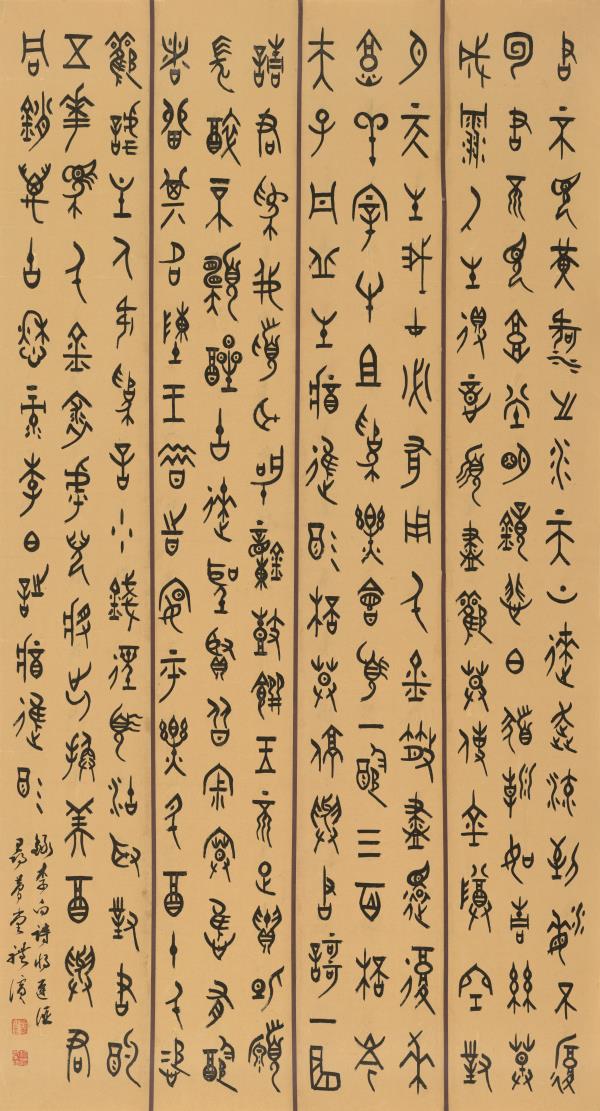 君不見黃河之水天上來奔流到海不復
回君不見高堂明鏡悲白髮朝如青絲暮
成雪人生得意須盡歡莫使金樽空對
月天生我才必有用千金散盡還復來
烹羊宰牛且為樂會須一飲三百杯岑
夫子丹丘生將進酒杯莫停與君歌一曲
請君為我傾耳聽鐘鼓饌玉不足貴但願
長醉不願醒古來聖賢皆寂寞惟有飲
者留其名陳王昔時宴平樂斗酒十千恣
歡謔主人何為言少錢徑須沽取對君酌
五花馬千金裘呼兒將出換美酒與君
同銷萬古愁李白詩將進酒
錄李白詩將進酒
尋夢堂